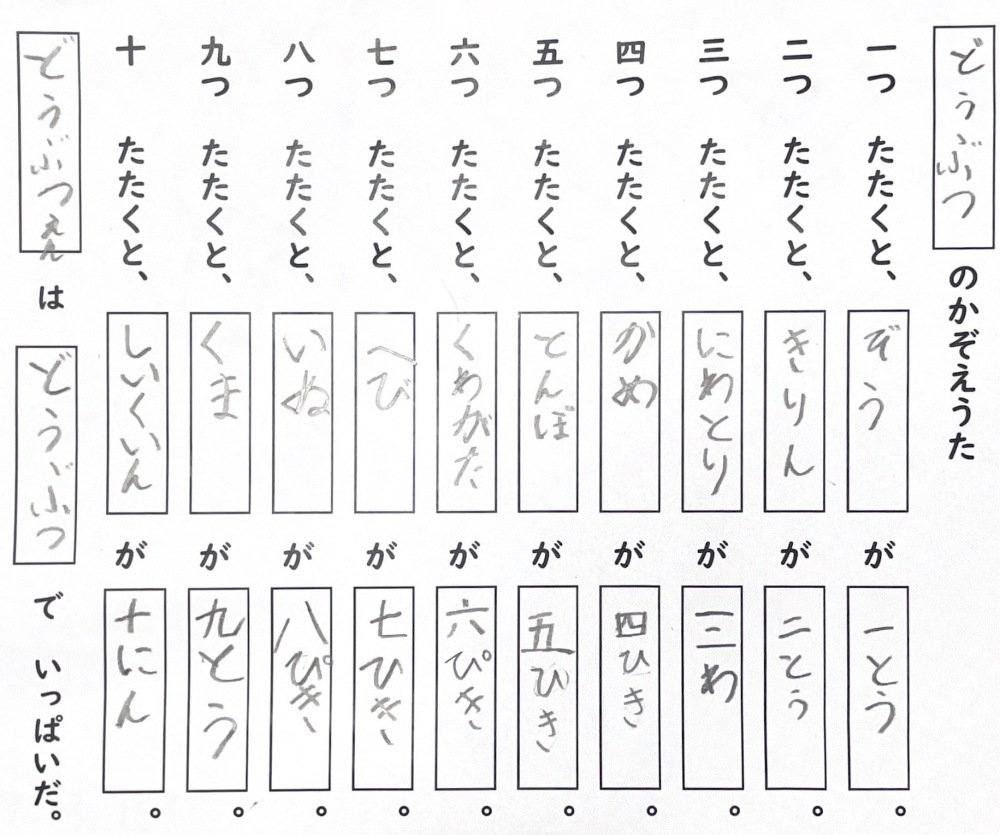 どうぶつのかぞえうた
一つ たたくと、ぞうが一とう。
二つ たたくと、きりんが二とう。
三つ たたくと、にわとりが三わ。
四つ たたくと、かめが四ひき。
五つ たたくと、とんぼが五ひき。
六つ たたくと、くわがたが六ぴき。
七つ たたくと、へびが七ひき。
八つ たたくと、いぬが八ぴき。
九つ たたくと、くまが九とう。
十 たたくと、しいくいんが十にん。
どうぶつえんは どうぶつで いっぱいだ。